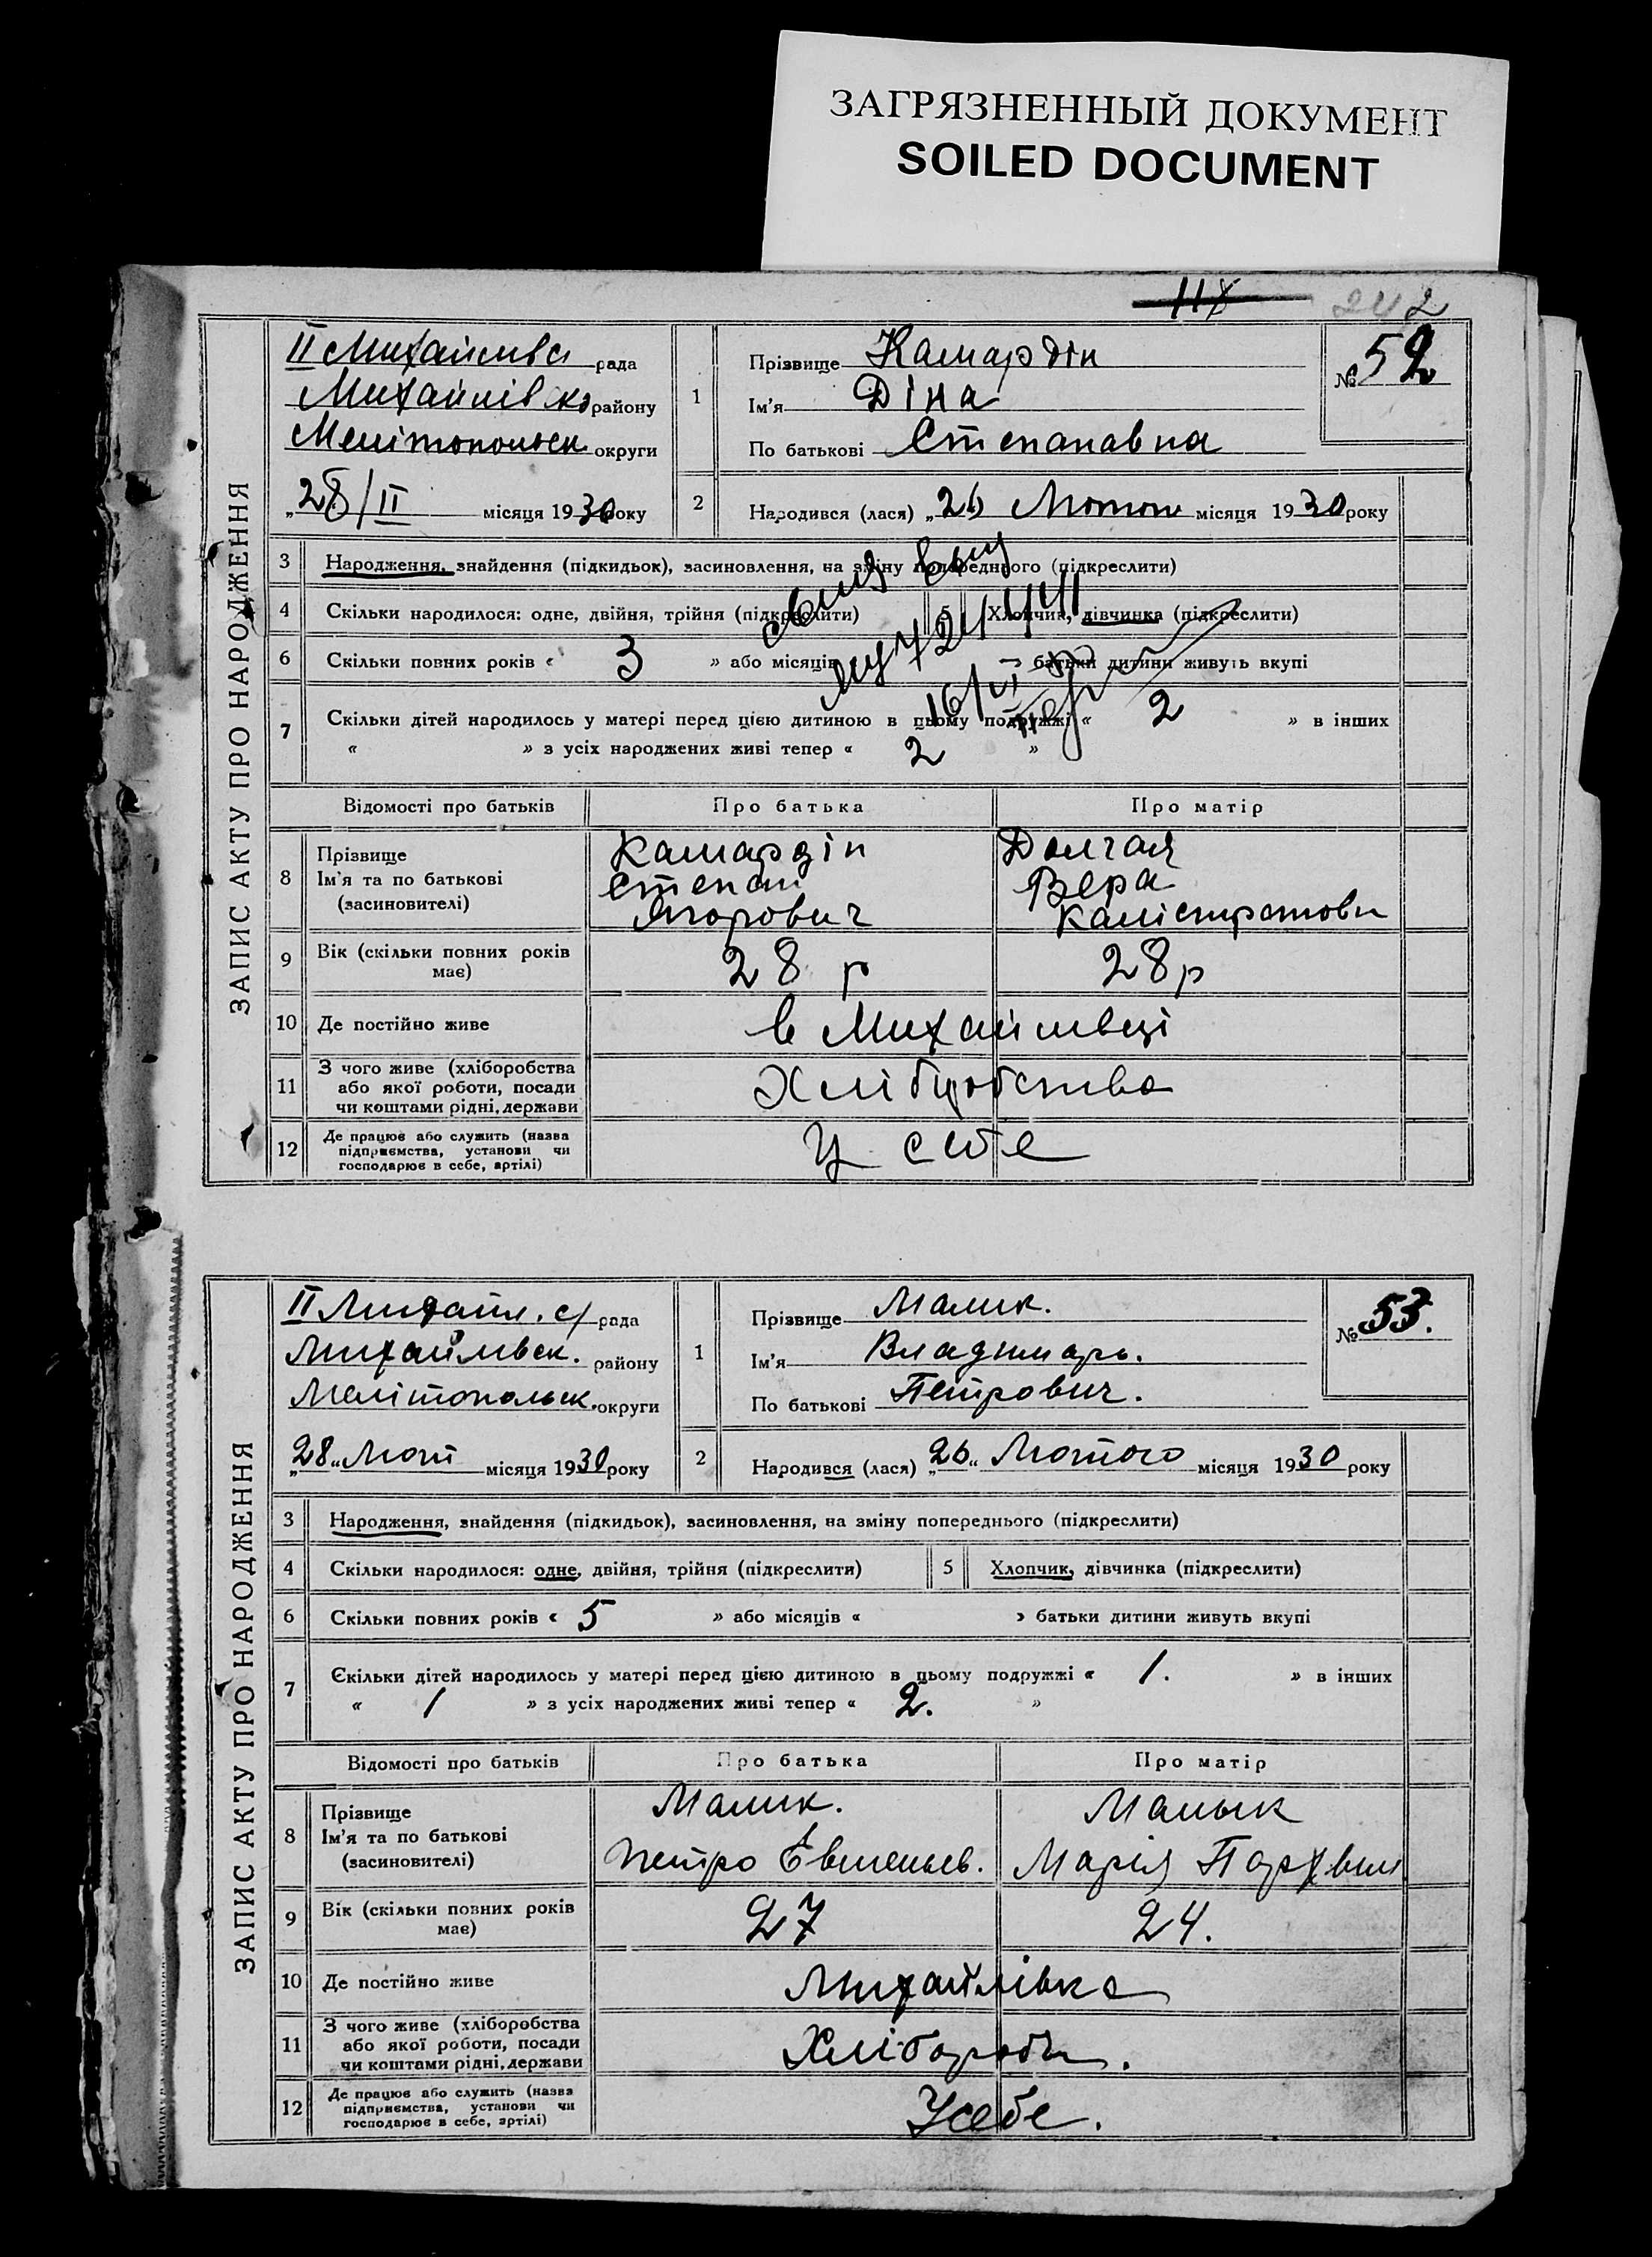 ЗАГРЯЗНЕННЫЙ ДОКУМЕНТ
SOILED DOCUMENT
242
ЗАПИС АКТУ ПРО НАРОДЖЕННЯ
II Михайлівс рада
Михайлівсько району
Мелітопольськ округи
„28/II місяця 1930 року
1
Прізвище Камардін
Ім'я Діна
По батькові Степанавна
№ 52
2
Народився (лася) „26 Лютого місяця 1930 року
3 Народження, знайдення (підкидьок), засиновлення, на зміну попереднього (підкреслити)
4 Скільки народилося: одне, двійня, трійня (підкреслити) 5 Хлопчик, дівчинка (підкреслити)
6 Скільки повних років « 3 » або місяців » батьки дитини живуть вкупі
7 Скільки дітей народилось у матері перед цією дитиною в цьому подружжі « 2 » в інших
« » з усіх народжених живі тепер « 2 »
Відомості про батьків Про батька Про матір
8 Прізвище Ім'я та по батькові (засновителі)
Камардін Долгая
Степан Вера
Ягорович Калістратовн
9 Вік (скільки повних років має) 28 р 28 р
10 Де постійно живе в Михайлівці
11 З чого живе (хліборобства або якої роботи, посади чи коштами рідні, держави
12 Де працює або служить (назва підприємства, установи чи господарює в себе, артілі) У себе
ЗАПИС АКТУ ПРО НАРОДЖЕННЯ
II Михайл. с/ рада
Михайлівськ. району
Мелітопольськ. округи
„28" Лют місяця 1930 року
1
Прізвище Малик.
Ім'я Владимарь.
По батькові Петрович.
№ 53.
2
Народився (лася) „26" Лютого місяця 1930 року
3 Народження, знайдення (підкидьок), засиновлення, на зміну попереднього (підкреслити)
4 Скільки народилося: одне, двійня, трійня (підкреслити) 5 Хлопчик, дівчинка (підкреслити)
6 Скільки повних років « 5 » або місяців « » батьки дитини живуть вкупі
7 Скільки дітей народилось у матері перед цією дитиною в цьому подружжі « 1. » в інших
« 1 » з усіх народжених живі тепер « 2. »
Відомості про батьків Про батька Про матір
8 Прізвище Ім'я та по батькові (засиновителі)
Малик. Малык
Петро Марія
9 Вік (скільки повних років має) 27 24.
10 Де постійно живе Михайлівка
11 З чого живе (хліборобства або якої роботи, посади чи коштами рідні, держави
12 Де працює або служить (назва підприємства, установи чи господарює в себе, артілі) Усебе.